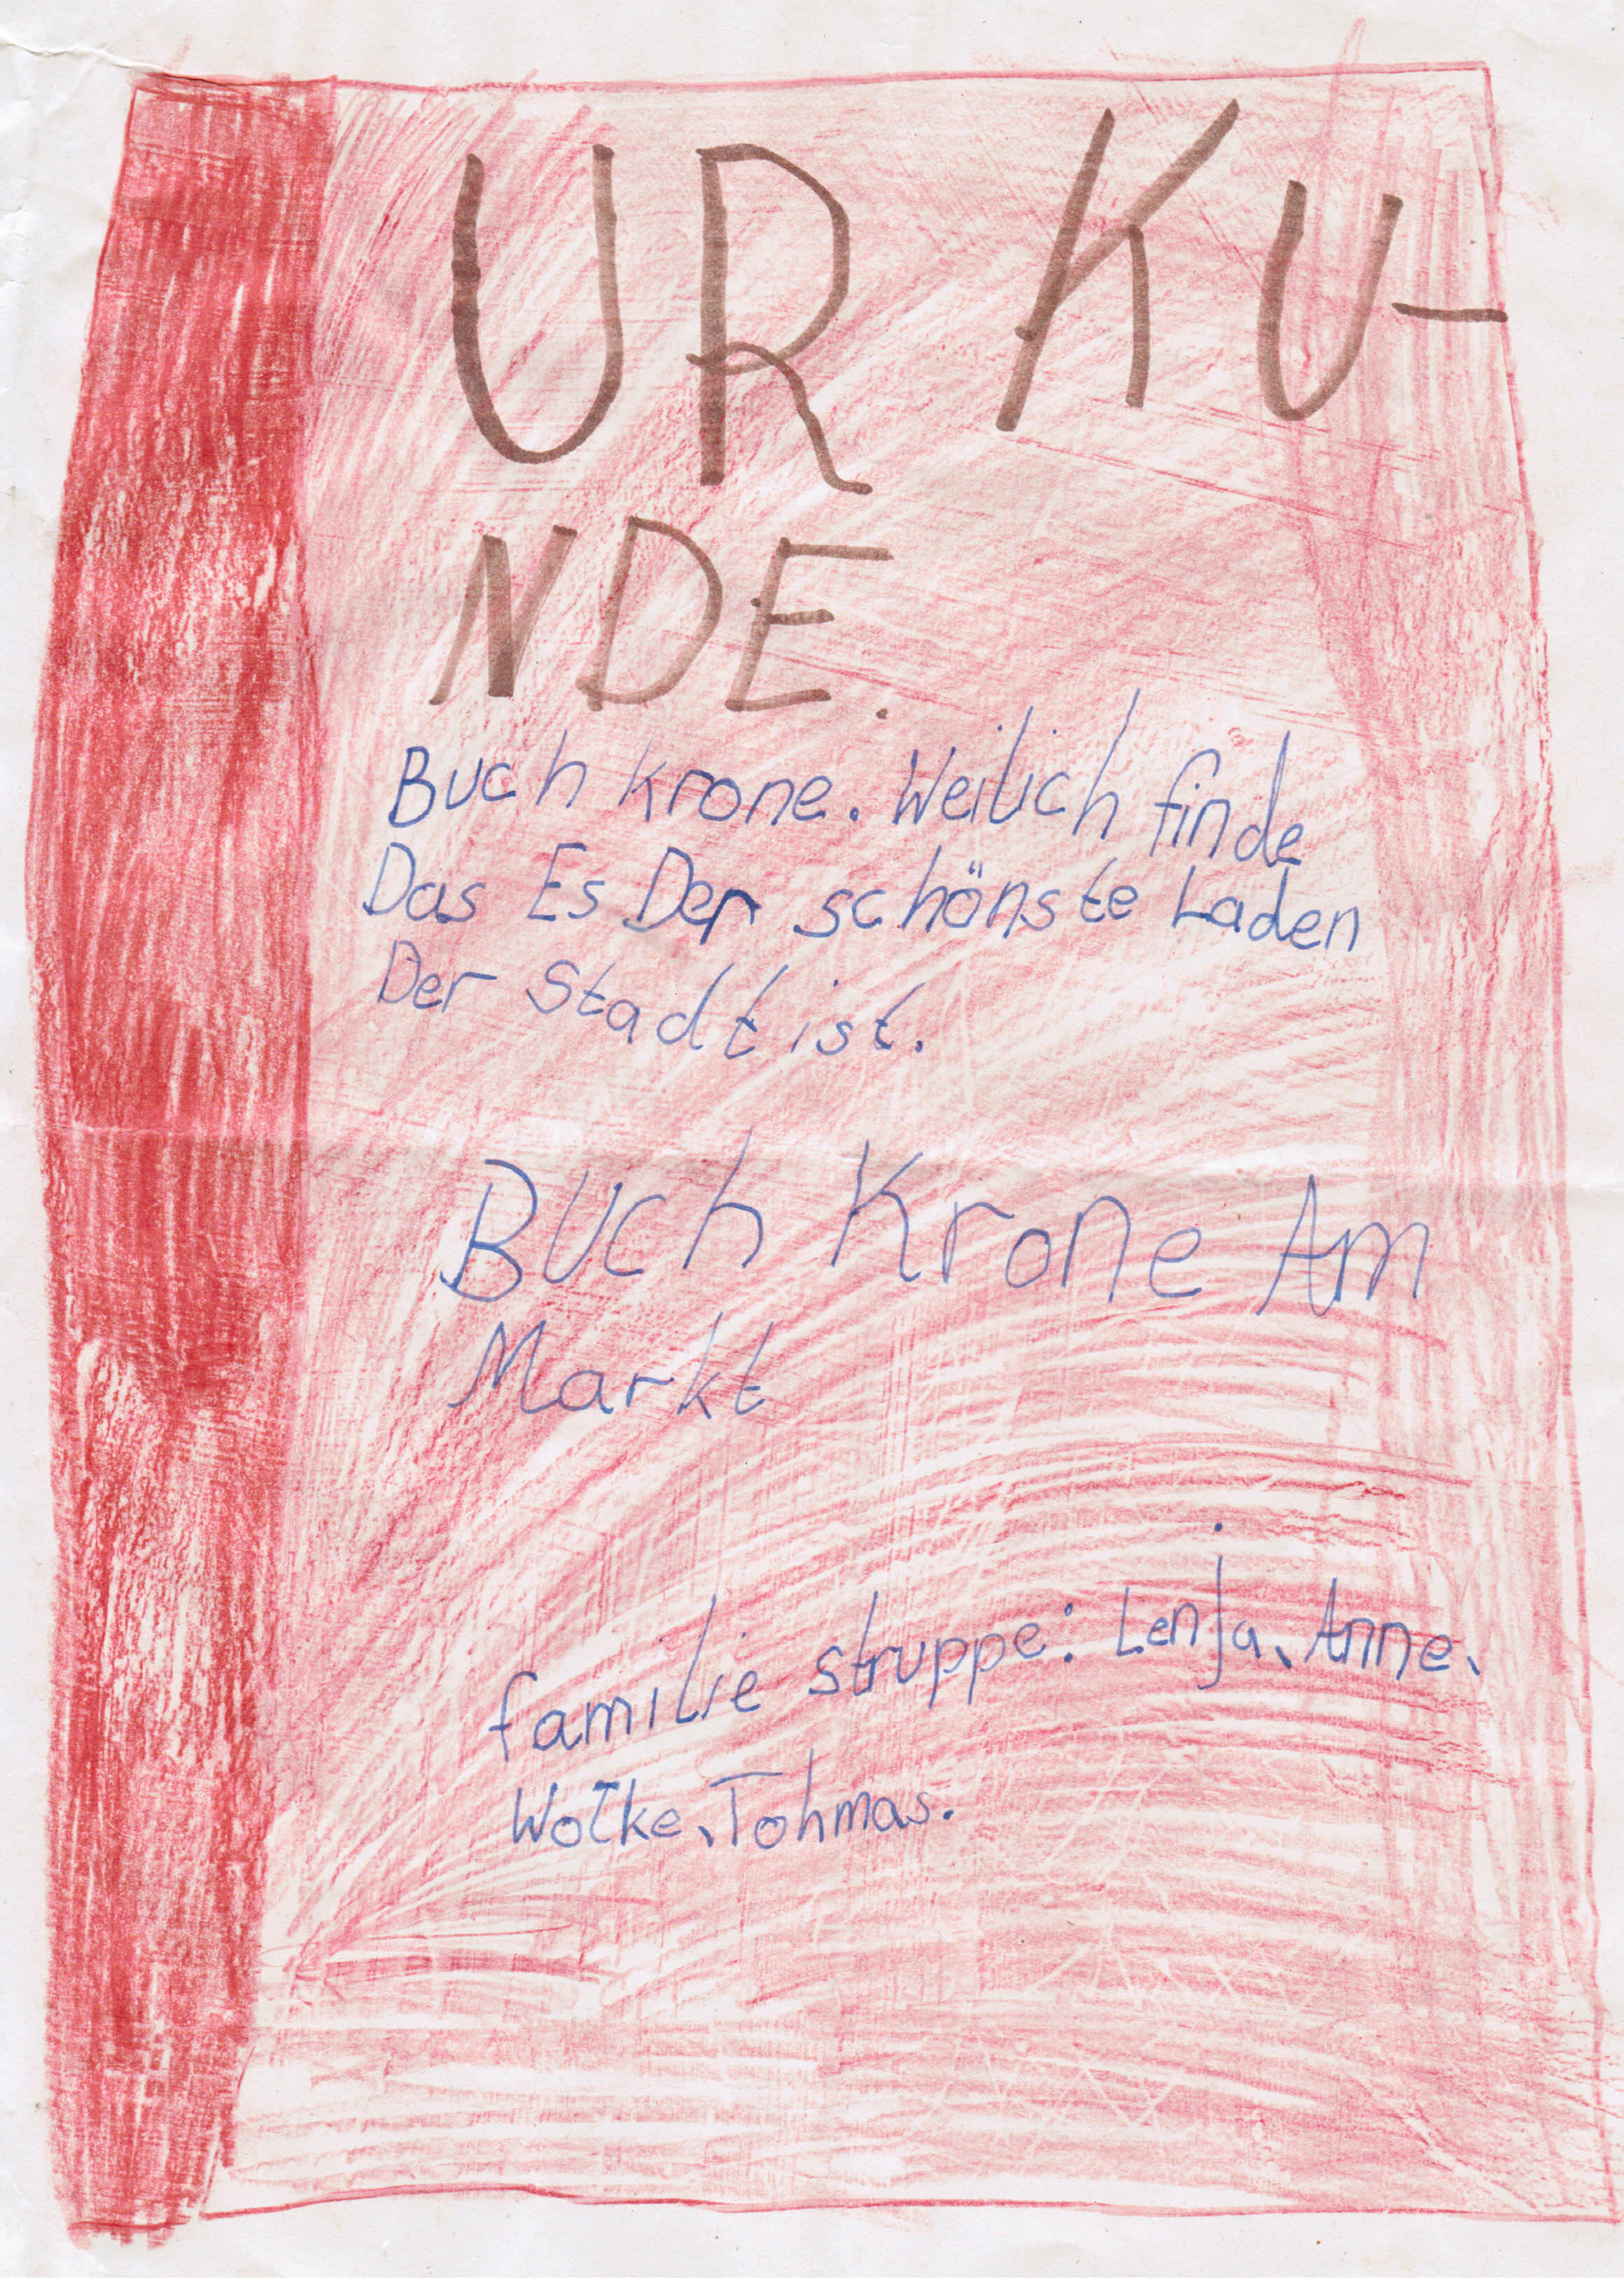 UR KU-
NDE.
Buch krone. Weil ich finde
Das Es Der schönste Laden
Der Stadt ist.
Buch Krone Am
Markt
familie struppe: Lenja, Anne,
Wotke, Tohmas.